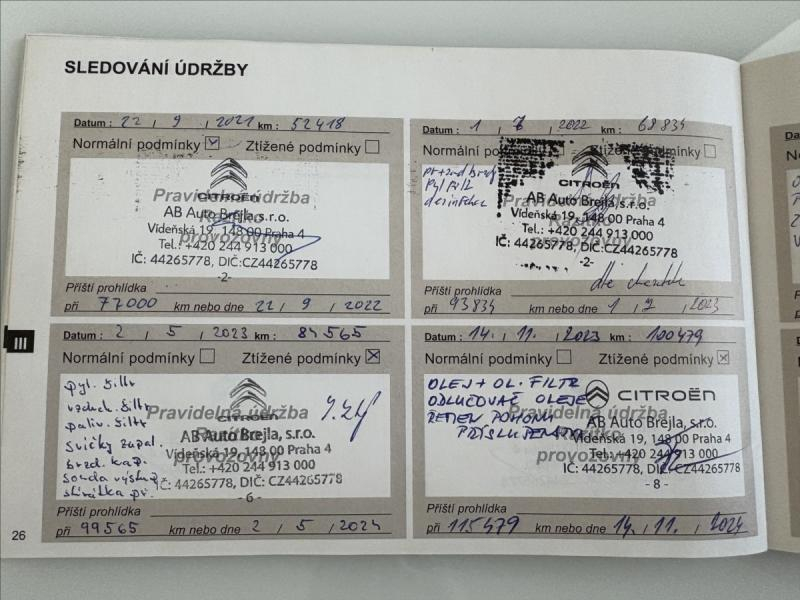 SLEDOVÁNÍ ÚDRŽBY
Datum : 22 / 9 / 2021 km : 52418
Normální podmínky Ztížené podmínky
Pravidelná údržba
CITROËN
Razítko
AB Auto Brejla, s.r.o.
Vídeňská 19, 148 00 Praha 4
provozovny
Tel.: +420 244 913 000
IČ: 44265778, DIČ:CZ44265778
-2-
Příští prohlídka
při 77000 km nebo dne 22 / 9 / 2022
Datum : 1 / 7 / 2022 km : 68834
Normální podmínky Ztížené podmínky
pyl filtr
desinfekce
CITROËN
Pravidelná údržba
AB Auto Brejla, s.r.o.
Razítko
Vídeňská 19, 148 00 Praha 4
provozovny
Tel.: +420 244 913 000
IČ: 44265778, DIČ:CZ44265778
-2-
Příští prohlídka
při 93834 km nebo dne 1 / 7 / 2023
III
Datum : 2 / 5 / 2023 km : 84565
Normální podmínky Ztížené podmínky
pyl. filtr
vzduch. filtr
paliv. filtr
svíčky zapal.
brzd. kap.
CITROËN
Pravidelná údržba
Razítko
AB Auto Brejla, s.r.o.
Vídeňská 19, 148 00 Praha 4
provozovny
Tel.: +420 244 913 000
IČ: 44265778, DIČ: CZ44265778
- 6 -
Příští prohlídka
při 99565 km nebo dne 2 / 5 / 2024
Datum : 14. / 11. / 2023 km : 100479
Normální podmínky Ztížené podmínky
OLEJ + OL. FILTR
ODLUČOVAČ OLEJE
ŘEMEN POHONU
PŘÍSLUŠENSTVÍ
CITROËN
Pravidelná údržba
Razítko
AB Auto Brejla, s.r.o.
Vídeňská 19, 148 00 Praha 4
provozovny
Tel.: +420 244 913 000
IČ: 44265778, DIČ: CZ44265778
- 8 -
Příští prohlídka
při 115479 km nebo dne 14. / 11. / 2024
26